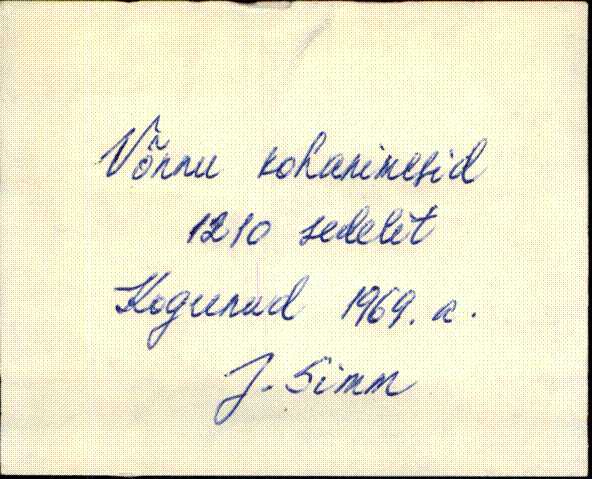 Võnnu kohanimesid
1210 sedelit
Kogunud 1969. a.
J. Simm